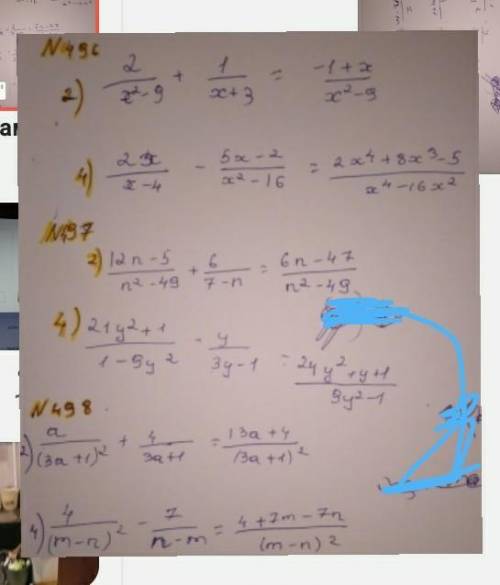 N496
2) 2/(x²-9) + 1/(x+3) = (-1+x)/(x²-9)
4) 23x/(x-4) - (5x-2)/(x²-16) = (2x⁴+8x³-5)/(x⁴-16x²)
N497
2) (12n-5)/(n²-49) + 6/(7-n) = (6n-47)/(n²-49)
4) (21y²+1)/(1-9y²) - y/(3y-1) = (24y²+y+1)/(9y²-1)
N498
2) a/(3a+1)² + 4/(3a+1) = (13a+4)/(3a+1)²
4) 4/(m-n)² - 7/(n-m) = (4+7m-7n)/(m-n)²